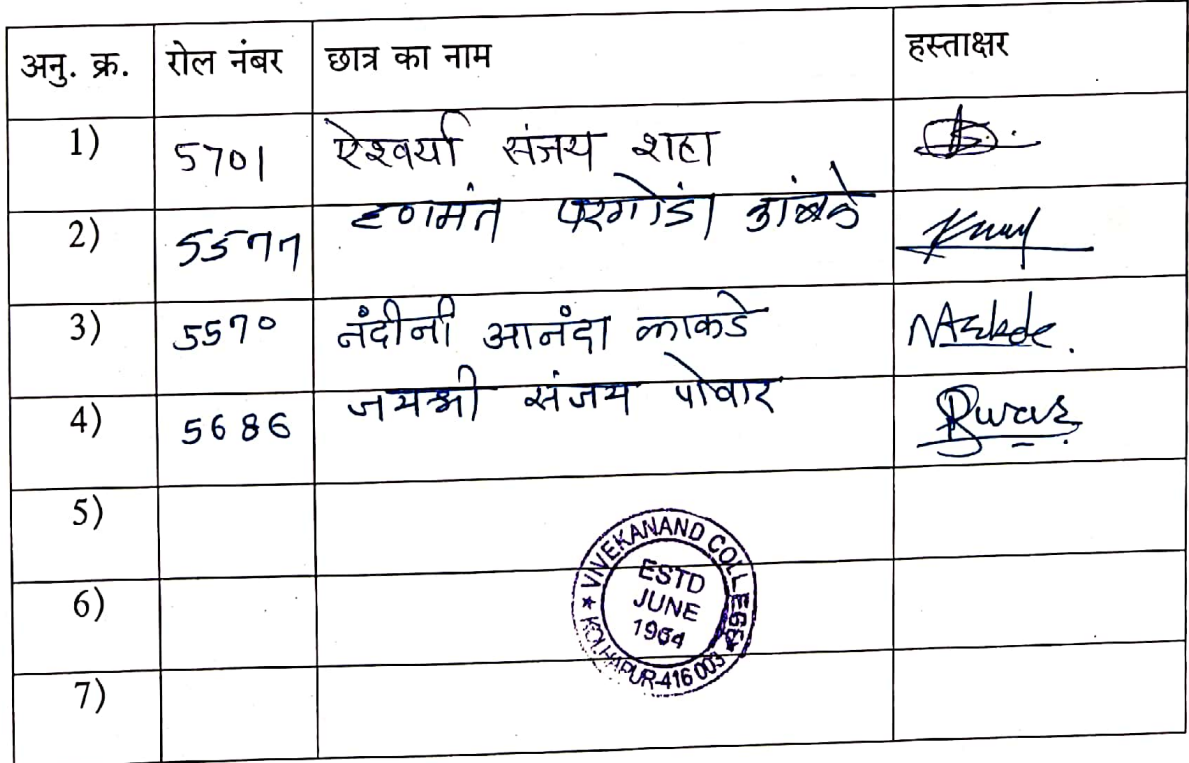 अनु. क्र. रोल नंबर छात्र का नाम हस्ताक्षर
1) 5701 ऐश्वर्या संजय शहा
2) 5577 हणमंत परगोंडा कांबळे
3) 5570 नंदीनी आनंदा काकडे
4) 5686 जयश्री संजय पोवार
5)
6)
7)
VIVEKANAND COLLEGE
ESTD
JUNE
1964
KOLHAPUR-416 003